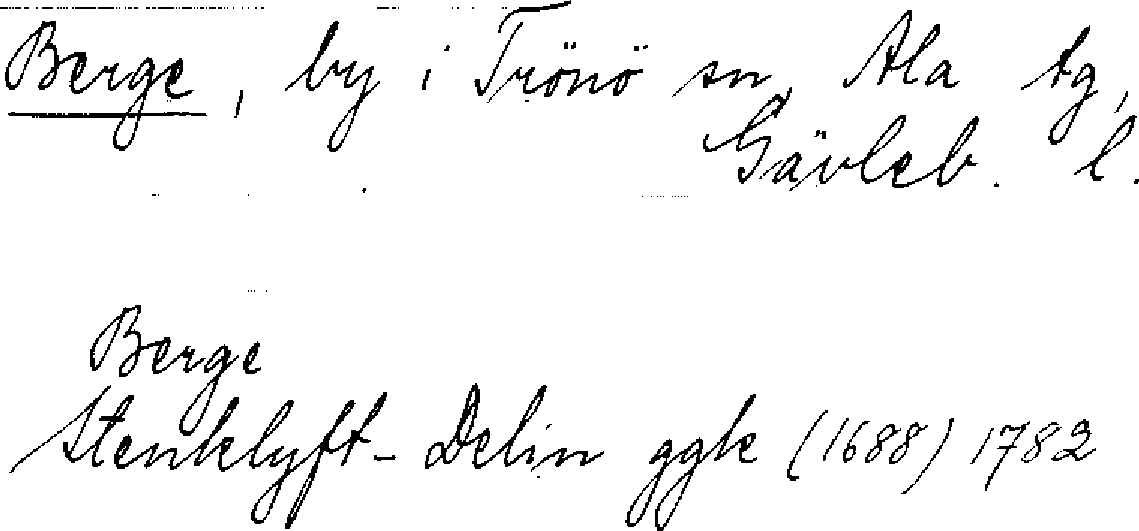 Berge, by i Trönö sn, Ala tg,
Gävleb. l.
Berge
Stenklyft- Delin ggk (1688) 1782